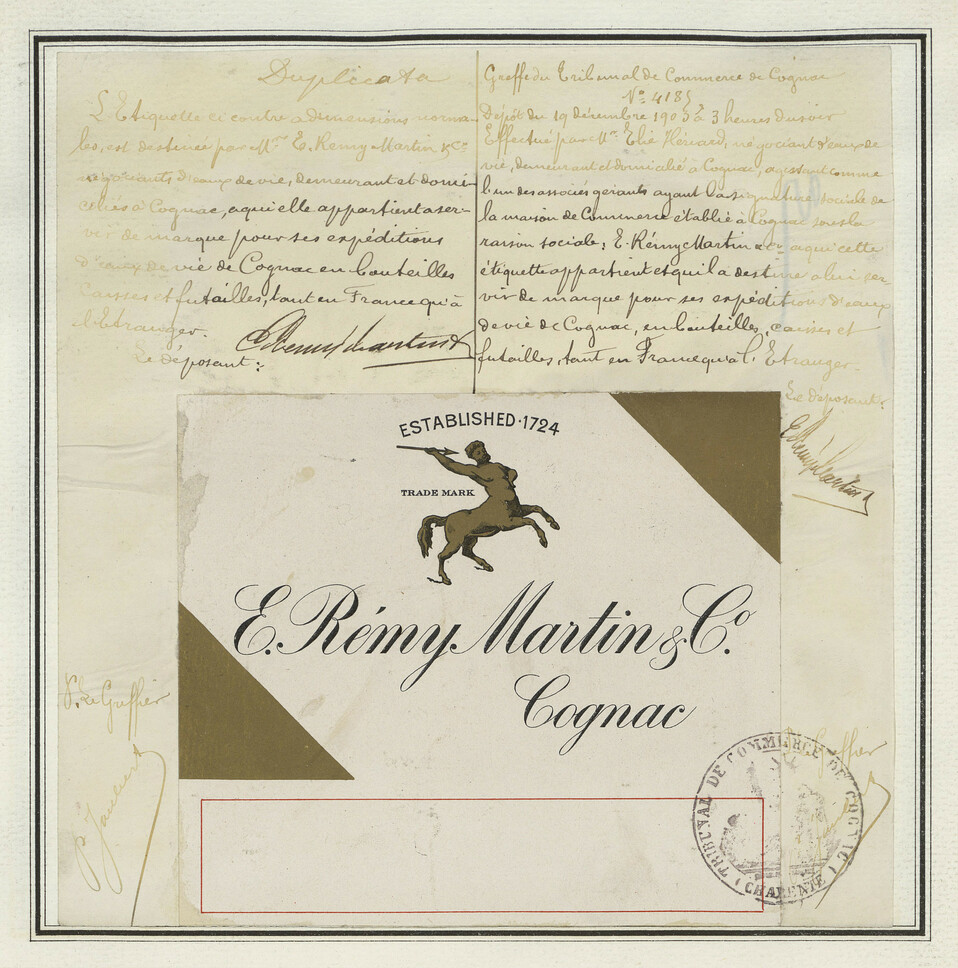 Duplicata
L'Etiquette ci contre a dimensions norma-
les, est destinée par Mr. E. Remy Martin & Co
négociants d'eaux de vie, demeurant et domi-
ciliés à Cognac, a qui elle appartient a ser-
vir de marque pour ses expéditions
d'eaux de vie de Cognac en bouteilles
caisses et futailles, tant en France qu'à
l'Etranger.
Le déposant:
E. Remy Martin & Co
Greffe du Tribunal de Commerce de Cognac
No. 4185
Dépôt du 19 décembre 1905 à 3 heures du soir
Effectué par Mr. Elie Hériard, négociant d'eaux de
vie, demeurant et domicilié à Cognac, agissant comme
l'un des associés gérants ayant la signature sociale de
la maison de Commerce établie à Cognac sous la
raison sociale: E. Rémy Martin & Co a qui cette
étiquette appartient et qui la destine a lui ser-
vir de marque pour ses expéditions d'eaux
de vie de Cognac, en bouteilles, caisses et
futailles, tant en France qu'a l'Etranger.
Le déposant:
E. Remy Martin
ESTABLISHED·1724
TRADE MARK
E. Rémy Martin & Co.
Cognac
P. Le Greffier
Greffier
TRIBUNAL DE COMMERCE DE COGNAC
(CHARENTE)